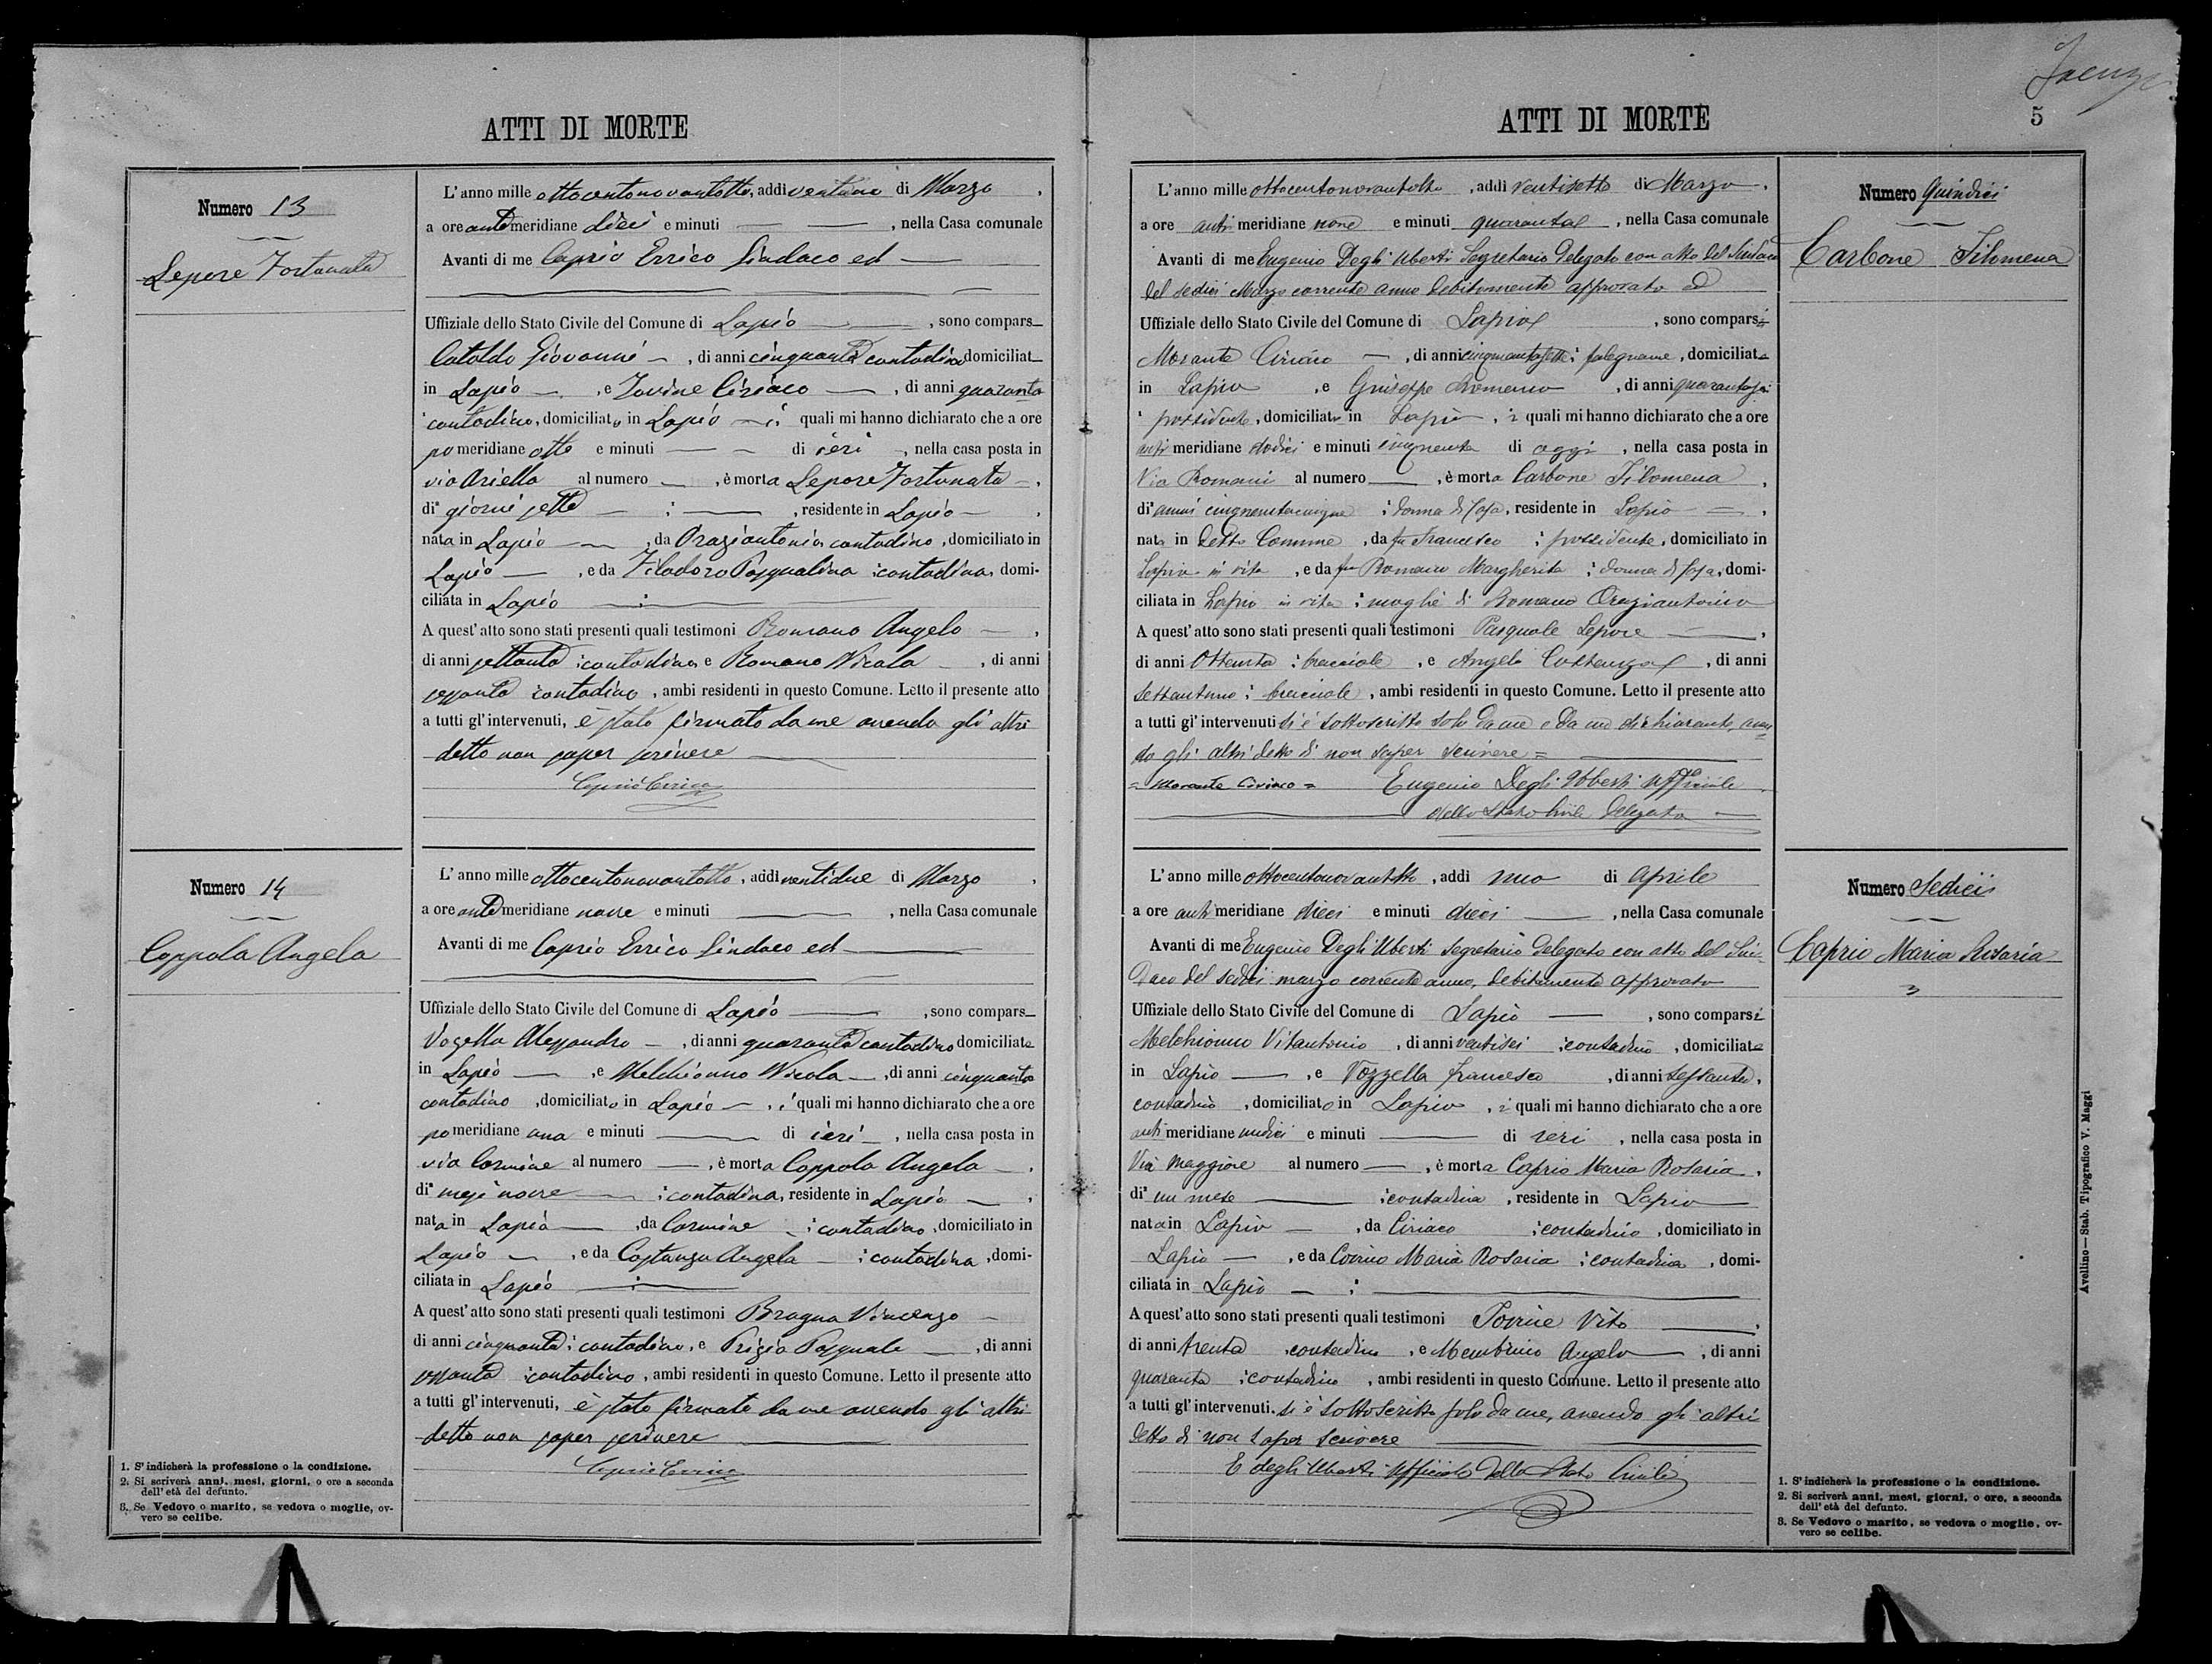 ATTI DI MORTE
Numero 13
Lepore Fortunata
L'anno mille ottocentonovantotto, addì ventuno di Marzo,
a ore antemeridiane dieci e minuti — —, nella Casa comunale
Avanti di me Caprio Errico Sindaco ed —
Uffiziale dello Stato Civile del Comune di Lapio —, sono compars
Cataldo Giovanni —, di anni cinquanta contadino domiciliat
in Lapio —, e Iovine Ciriaco —, di anni quaranta
contadino, domiciliato in Lapio — i quali mi hanno dichiarato che a ore
pomeridiane otto e minuti — — di ieri —, nella casa posta in
via Ariella al numero —, è morta Lepore Fortunata —,
di giorni sette — : —, residente in Lapio —,
nata in Lapio —, da Oraziantonio contadino, domiciliato in
Lapio —, e da Filadoro Pasqualina contadina, domi-
ciliata in Lapio —
A quest'atto sono stati presenti quali testimoni Romano Angelo —,
di anni settanta contadino e Romano Nicola —, di anni
sessanta contadino, ambi residenti in questo Comune. Letto il presente atto
a tutti gl'intervenuti, è stato firmato da me avendo gli altri
detto non saper scrivere —
Caprio Errico
Numero 14
Coppola Angela
L'anno mille ottocentonovantotto, addì ventidue di Marzo,
a ore antemeridiane nove e minuti —, nella Casa comunale
Avanti di me Caprio Errico Sindaco ed —
Uffiziale dello Stato Civile del Comune di Lapio —, sono compars
Vozella Alessandro —, di anni quaranta contadino domiciliato
in Lapio —, e Melchionno Nicola —, di anni cinquanta
contadino, domiciliato in Lapio —, i quali mi hanno dichiarato che a ore
pomeridiane una e minuti — di ieri —, nella casa posta in
via Carmine al numero —, è morta Coppola Angela —,
di mesi nove — contadina, residente in Lapio —,
nata in Lapio —, da Carmine — contadino, domiciliato in
Lapio —, e da Costanza Angela — contadina, domi-
ciliata in Lapio —
A quest'atto sono stati presenti quali testimoni Bragna Vincenzo —
di anni cinquanta contadino, e Prizio Pasquale —, di anni
sessanta contadino, ambi residenti in questo Comune. Letto il presente atto
a tutti gl'intervenuti, è stato firmato da me avendo gli altri
detto non saper scrivere —
Caprio Errico
1. S'indicherà la professione o la condizione.
2. Si scriverà anni, mesi, giorni, o ore a seconda
dell'età del defunto.
3. Se Vedovo o marito, se vedova o moglie, ov-
vero se celibe.
ATTI DI MORTE
5
Numero Quindici
Carbone Filomena
L'anno mille ottocentonovantotto, addì ventisette di Marzo,
a ore antimeridiane nove e minuti quaranta, nella Casa comunale
Avanti di me Eugenio Degli Uberti Segretario Delegato con atto del Sindaco
del sedici Marzo corrente anno debitamente approvato ed
Uffiziale dello Stato Civile del Comune di Lapio, sono comparsi
Morante Ciriaco —, di anni cinquantasette falegname, domiciliato
in Lapio, e Giuseppe Romano, di anni quarantasei
possidente, domiciliato in Lapio, i quali mi hanno dichiarato che a ore
antimeridiane dodici e minuti cinquanta di oggi, nella casa posta in
Via Romani al numero —, è morta Carbone Filomena,
di anni cinquantacinque donna di casa, residente in Lapio —,
nata in detto Comune, da fu Francesco possidente, domiciliato in
Lapio in vita, e da fu Romano Margherita donna di casa, domi-
ciliata in Lapio in vita moglie di Romano Oraziantonio
A quest'atto sono stati presenti quali testimoni Pasquale Lepore —,
di anni Ottanta bracciale, e Angelo Costanza, di anni
settantuno bracciale, ambi residenti in questo Comune. Letto il presente atto
a tutti gl'intervenuti si è sottoscritto solo da me e da un dichiarante, aven-
do gli altri detto di non saper scrivere =
= Morante Ciriaco = Eugenio Degli Uberti Uffiziale
dello Stato Civile Delegato —
Numero Sedici
Caprio Maria Rosaria
L'anno mille ottocentonovantotto, addì uno di Aprile
a ore antimeridiane dieci e minuti dieci —, nella Casa comunale
Avanti di me Eugenio Degli Uberti Segretario Delegato con atto del Sin-
daco del sedici marzo corrente anno, debitamente approvato
Uffiziale dello Stato Civile del Comune di Lapio —, sono comparsi
Melchionno Vitantonio, di anni ventisei contadino, domiciliato
in Lapio —, e Vozzella Francesco, di anni sessanta,
contadino, domiciliato in Lapio, i quali mi hanno dichiarato che a ore
antimeridiane undici e minuti — di ieri, nella casa posta in
Via Maggiore al numero —, è morta Caprio Maria Rosaria,
di un mese — contadina, residente in Lapio
nata in Lapio —, da Ciriaco contadino, domiciliato in
Lapio —, e da Maria Rosaria contadina, domi-
ciliata in Lapio —
A quest'atto sono stati presenti quali testimoni Iovine Vito —,
di anni trenta contadino, e Membrino Angelo —, di anni
quaranta contadino, ambi residenti in questo Comune. Letto il presente atto
a tutti gl'intervenuti, si è sottoscritto solo da me, avendo gli altri
detto di non saper scrivere —
E degli Uberti Ufficiale dello Stato Civile
1. S'indicherà la professione o la condizione.
2. Si scriverà anni, mesi, giorni, o ore, a seconda
dell'età del defunto.
3. Se Vedovo o marito, se vedova o moglie, ov-
vero se celibe.
Avellino—Stab. Tipografico V. Maggi